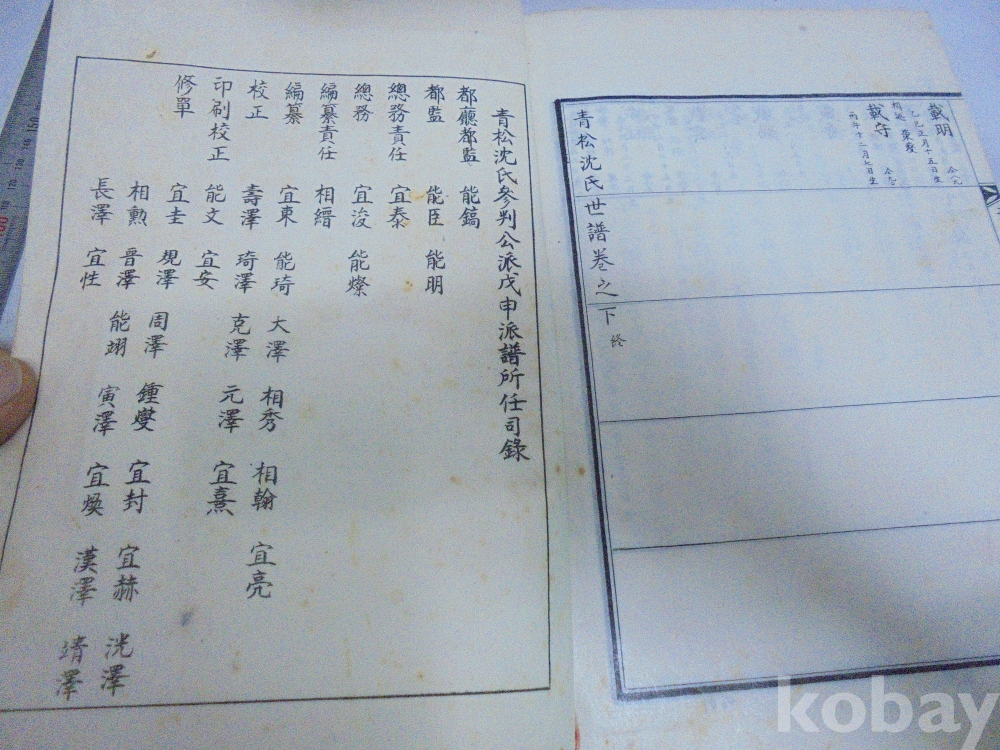 載明
乙巳正月十五日生
載守
丙午十二月七日生
青松沈氏世譜卷之下 終
青松沈氏參判公派戊申派譜所任司錄
都廳都監 能鎬
都監 能臣 能明
總務責任 宜泰
總務 宜浚 能燦
編纂責任 相縉
編纂 宜東 能琦 大澤 相秀 相翰 宜亮
校正 壽澤 琦澤 克澤 元澤 宜熹
印刷校正 能文 宜安
修單 宜圭 規澤 周澤 鍾燮 宜封 宜赫 洸澤
相勳 晉澤 能翊 寅澤 宜煥 漢澤 靖澤
長澤 宜性
kobay